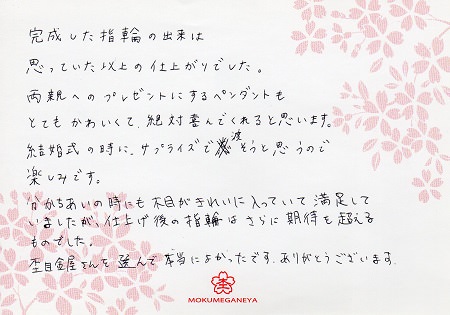 完成した指輪の出来は
思っていた以上の仕上がりでした。
両親へのプレゼントにするペンダントも
とてもかわいくて、絶対喜んでくれると思います。
結婚式の時に、サプライズで渡そうと思うので
楽しみです。
分かちあいの時にも木目がきれいに入っていて満足して
いましたが、仕上げ後の指輪はさらに期待を超える
ものでした。
杢目金屋さんを選んで本当によかったです。ありがとうございます。
MOKUMEGANEYA